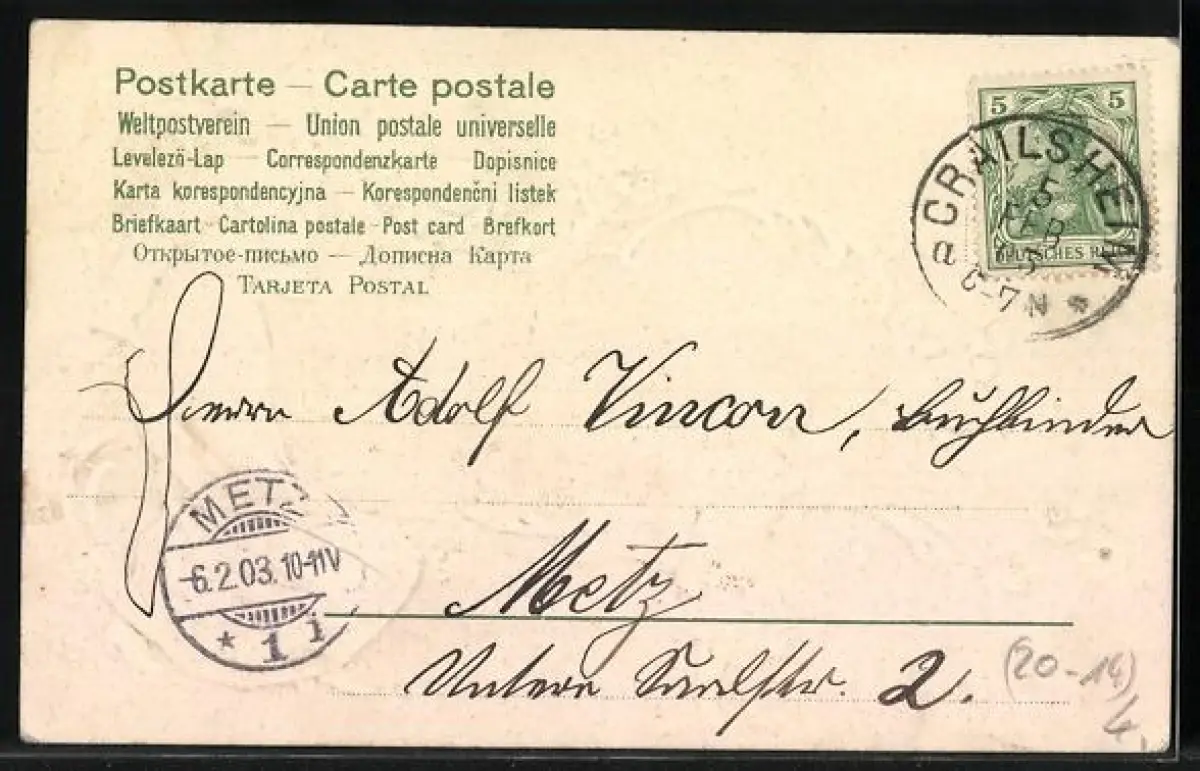 Postkarte — Carte postale
Weltpostverein — Union postale universelle
Levelező-Lap — Correspondenzkarte Dopisnice
Karta korespondencyjna — Korespondenční listek
Briefkaart - Cartolina postale - Post card Brefkort
Открытое-письмо — Дописна Карта
TARJETA POSTAL
5 5
DEUTSCHES REICH
CRAILSHEIM
5
FEB
a 6-7N *
Herrn Adolf Vincon, Buchbinder
METZ
-6.2.03.10-11V
* 1 i
Metz
Untere 2.
(20-14)